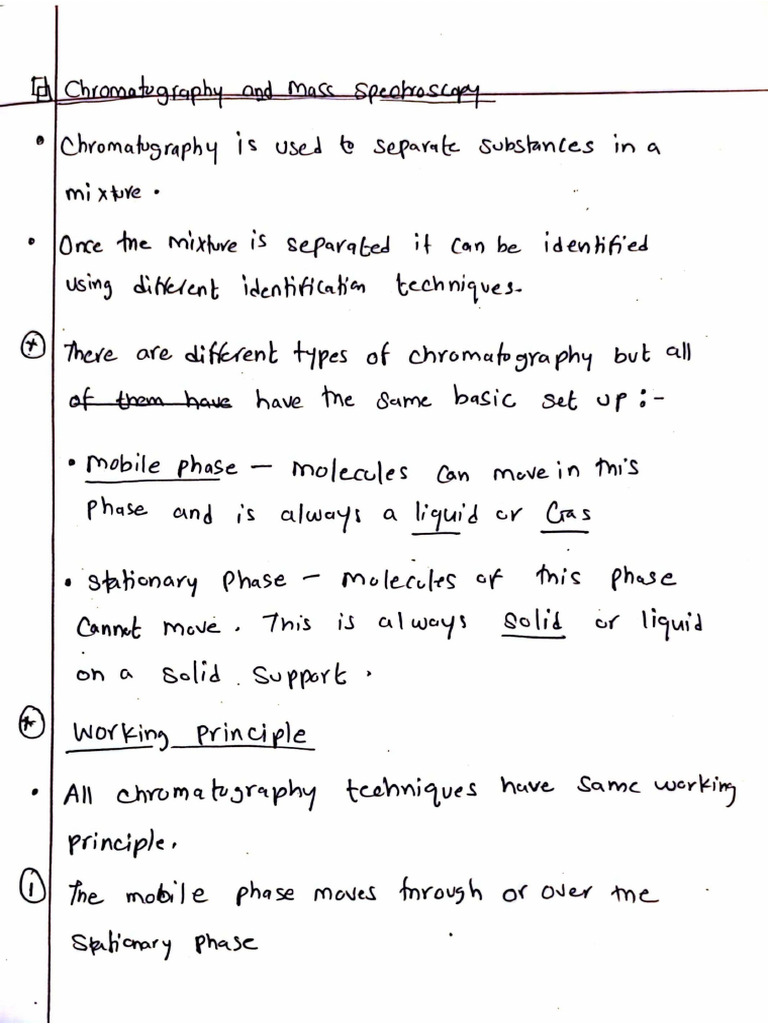 Chromatography and Mass Spectroscopy
• Chromatography is used to separate substances in a
mixture.
• Once the mixture is separated it can be identified
using different identification techniques.
* There are different types of chromatography but all
of them have have the same basic set up :-
• Mobile phase - molecules can move in this
phase and is always a liquid or Gas
• Stationary Phase - Molecules of this phase
cannot move. This is always solid or liquid
on a solid support.
* Working Principle
• All chromatography techniques have same working
principle.
① The mobile phase moves through or over the
stationary phase